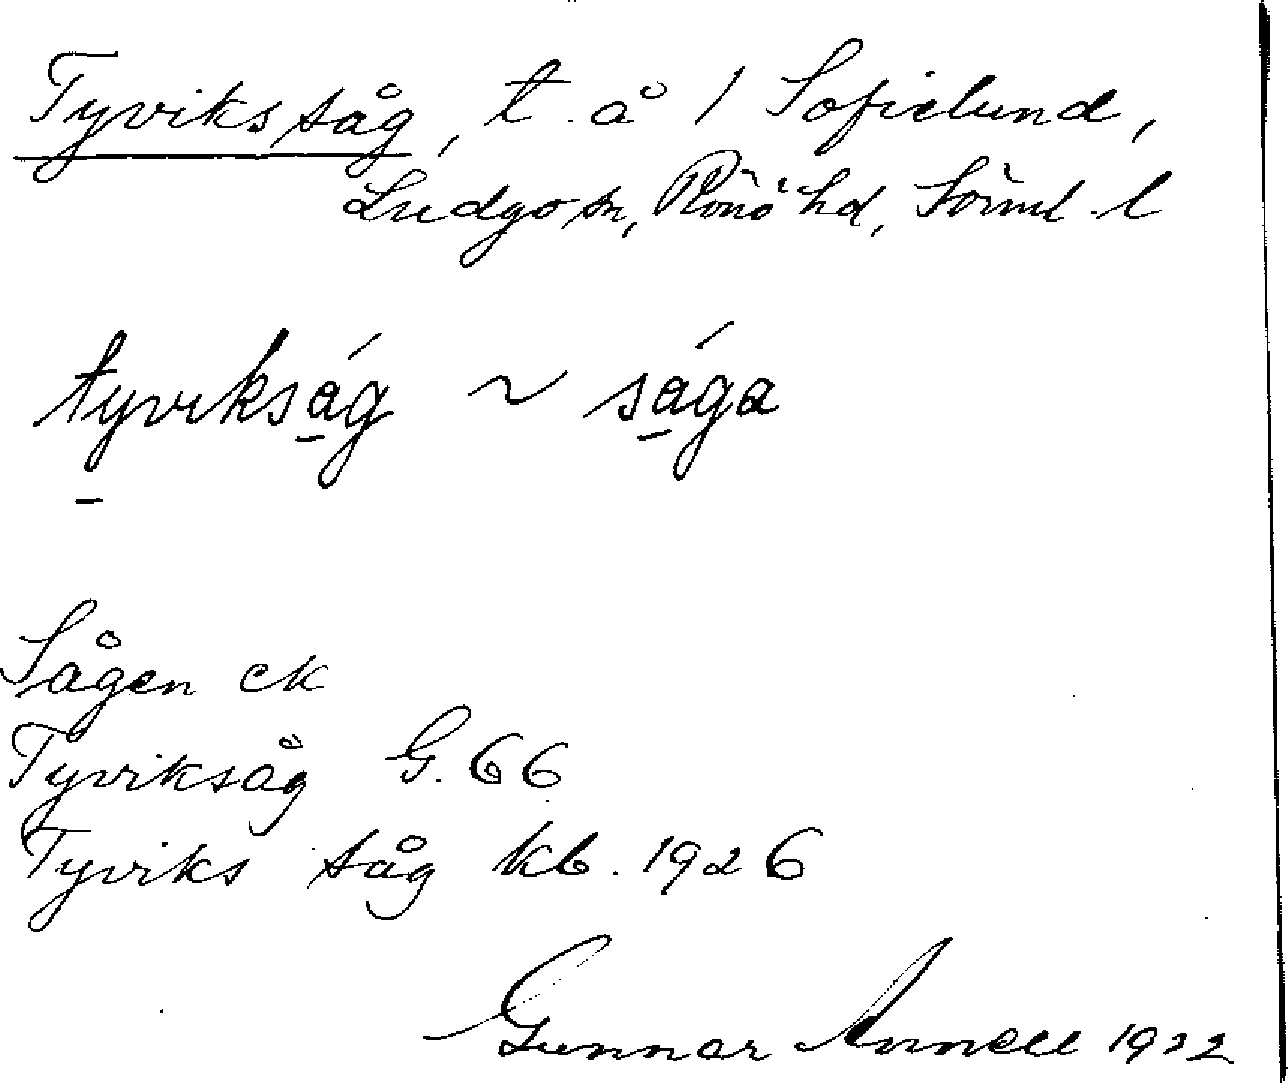 Tyvikssåg, t. å 1 Sofielund,
Ludgo sn, Rönö hd, Söml. l
tyvikság ~ sága
Sågen ck
Tyviksåg G. 66
Tyviks såg kb. 1926
Gunnar Annell 1932